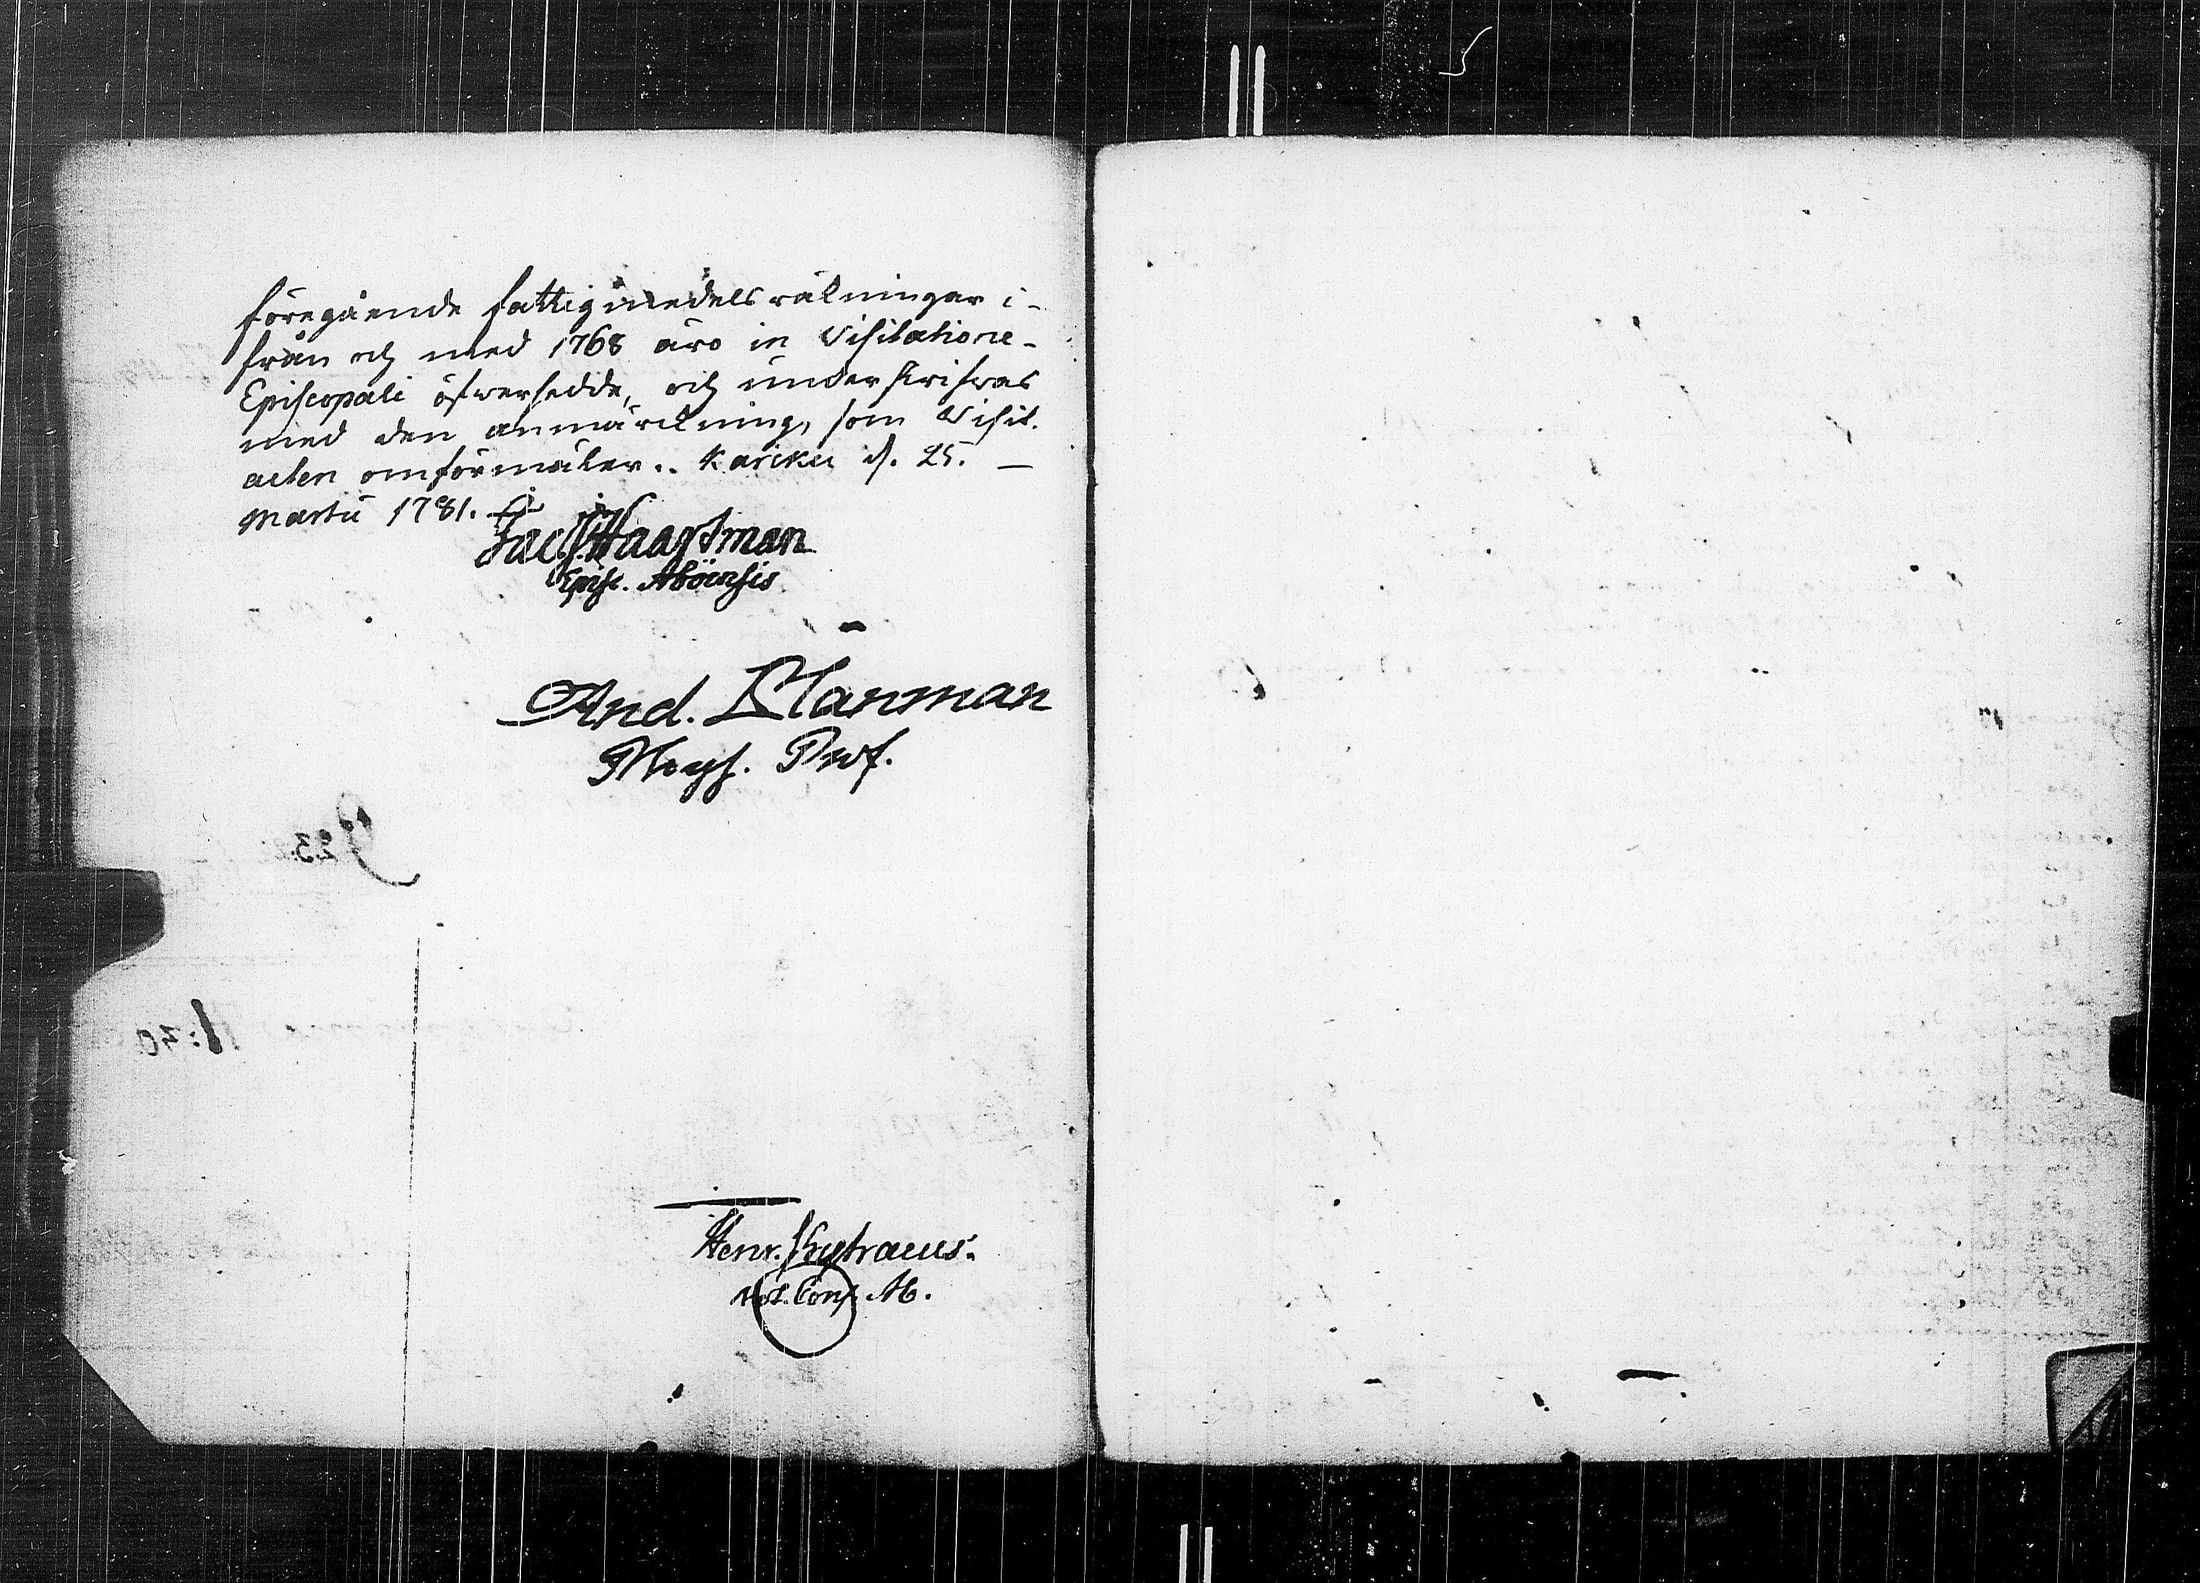 föregående fattigmedels räkningar i-
från och med 1768 äro in Visitatione-
Episcopali öfwersedde, och underskrifwas
med den anmärckning, som Visit.
acten omförmäler. Karcku d. 25. —
Martii 1781.
Jac. Haartman
Episc. Aboënsis
And. Planman
Phys. Prof.
Henr. Kytraeus.
Not. Cons. Ab.